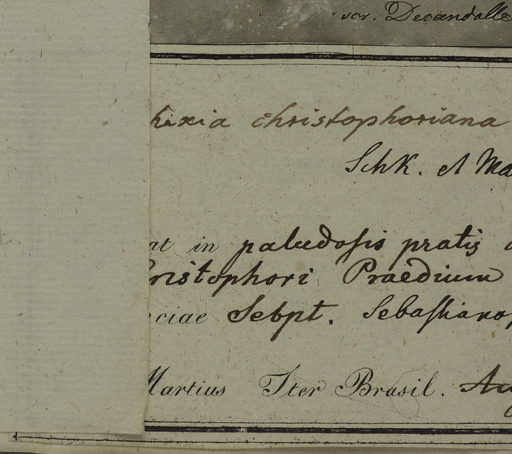 scr. Decandolle
hexia christophoriana
Schk. et Ma
at in paludosis pratis
ristophori Praedium
ciae Sebpt. Sebastianop
Martius Iter Brasil. Aug